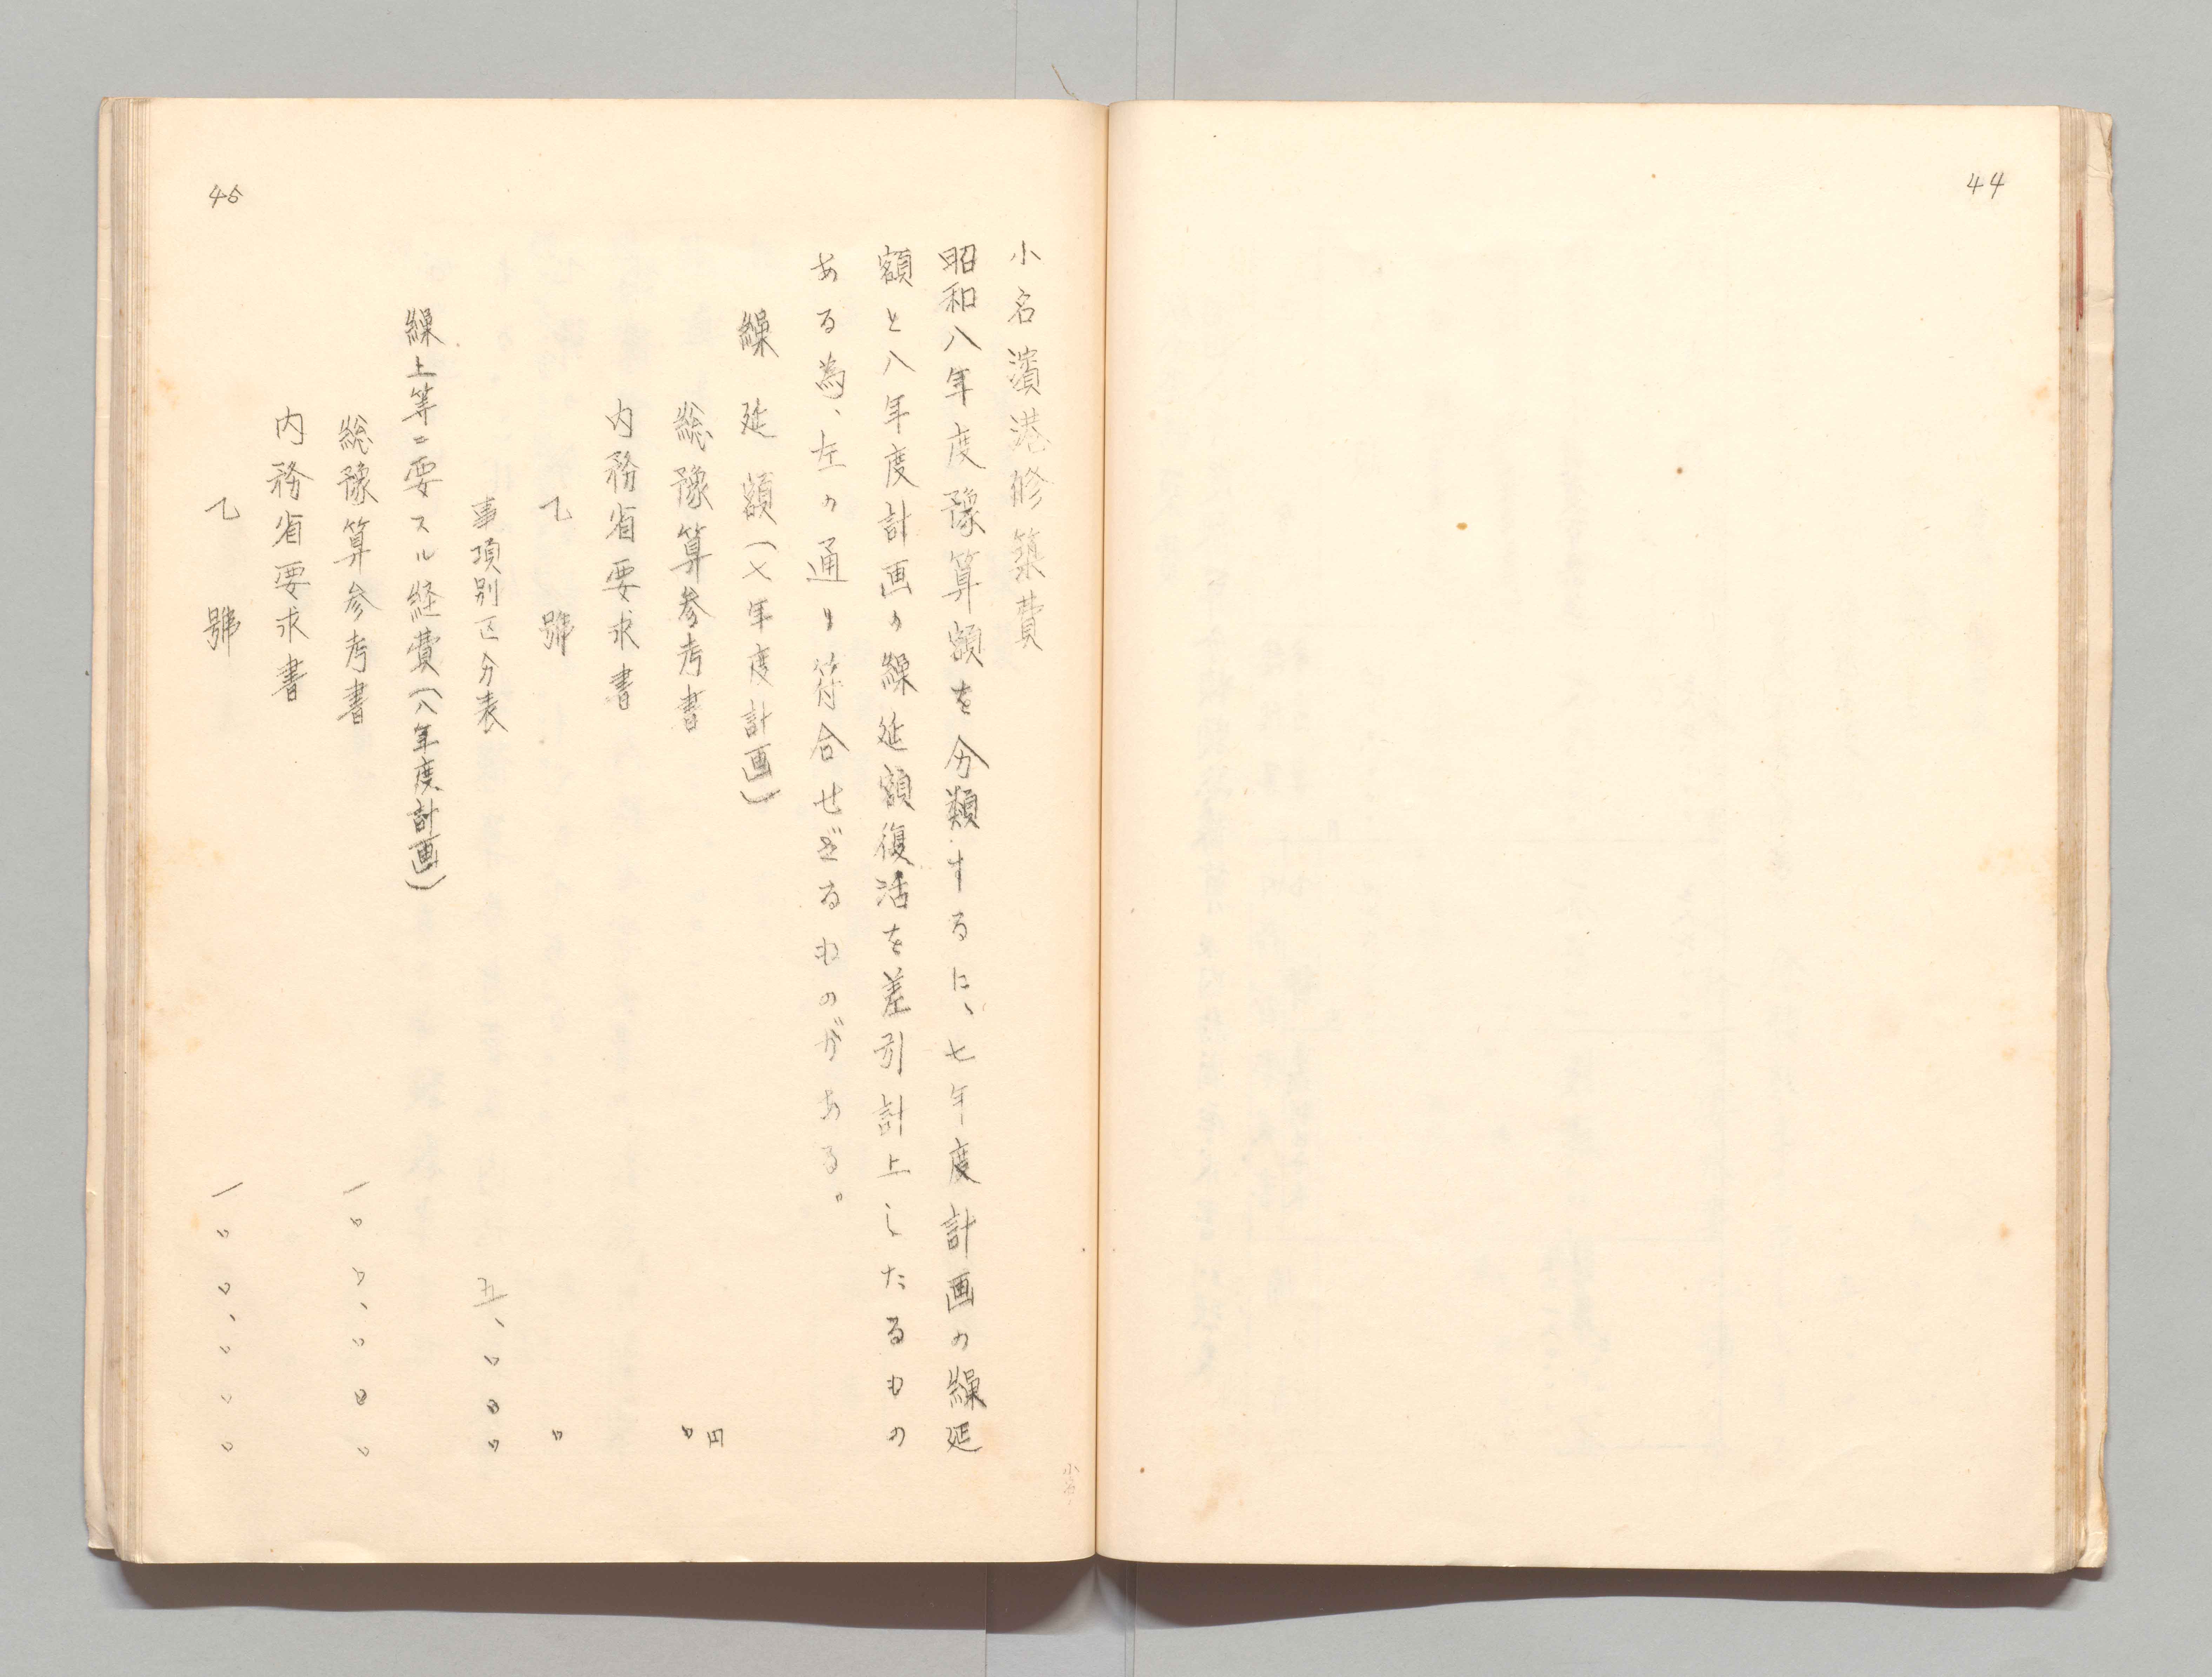 44
小名濱港修築費
昭和八年度豫算額を分類するに、七年度計画の繰延
額と八年度計画の繰延額復活を差引計上したるもの
ある為、左の通り符合せざるものがある。
繰延額(七年度計画)
円
総豫算参考書 〇
内務省要求書
乙號 〇
事項別区分表 五、〇〇〇
繰上等ニ要スル経費(八年度計画)
総豫算参考書 一〇〇、〇〇〇
内務省要求書
乙號 一〇〇、〇〇〇
45